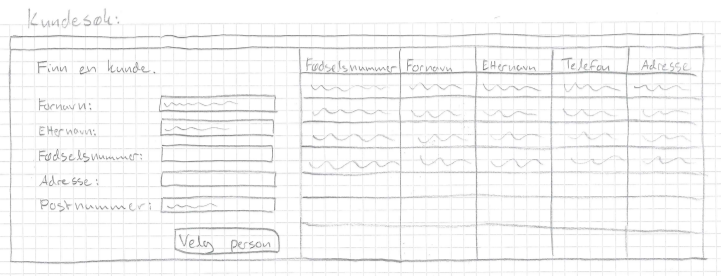 Kundesøk:
Finn en kunde.
Fornavn:
Etternavn:
Fødselsnummer:
Adresse:
Postnummer:
Velg person
Fødselsnummer Fornavn Etternavn Telefon Adresse